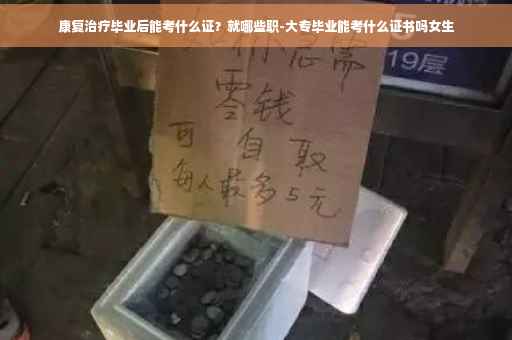 康复治疗毕业后能考什么证？就哪些职-大专毕业能考什么证书吗女生
你急需
零钱
可自取
每人最多5元
5
19层